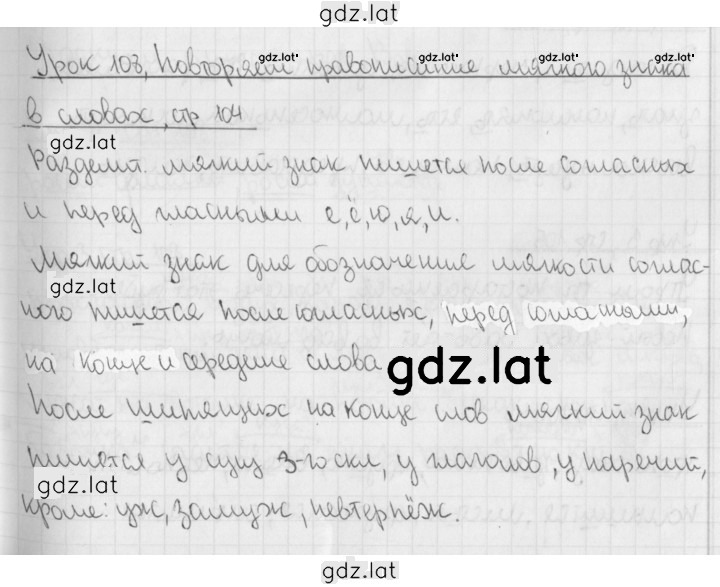 gdz.lat
Урок 108, Повторяем правописание мягкого знака
gdz.lat' gdz.lat' gdz.lat' gdz.lat'
в словах, стр 104
gdz.lat
Разделит. мягкий знак пишется после согласных
и перед гласными е, ё, ю, я, и.
Мягкий знак для обозначение мягкости соглас-
gdz.lat
ного пишется после согласных, перед согласными,
на конце и середине слова
gdz.lat
После шипящих на конце слов мягкий знак
пишется у сущ 3-го скл, у глаголов, у наречий,
gdz.lat
кроме: уж, замуж, невтерпёж.
gdz.lat